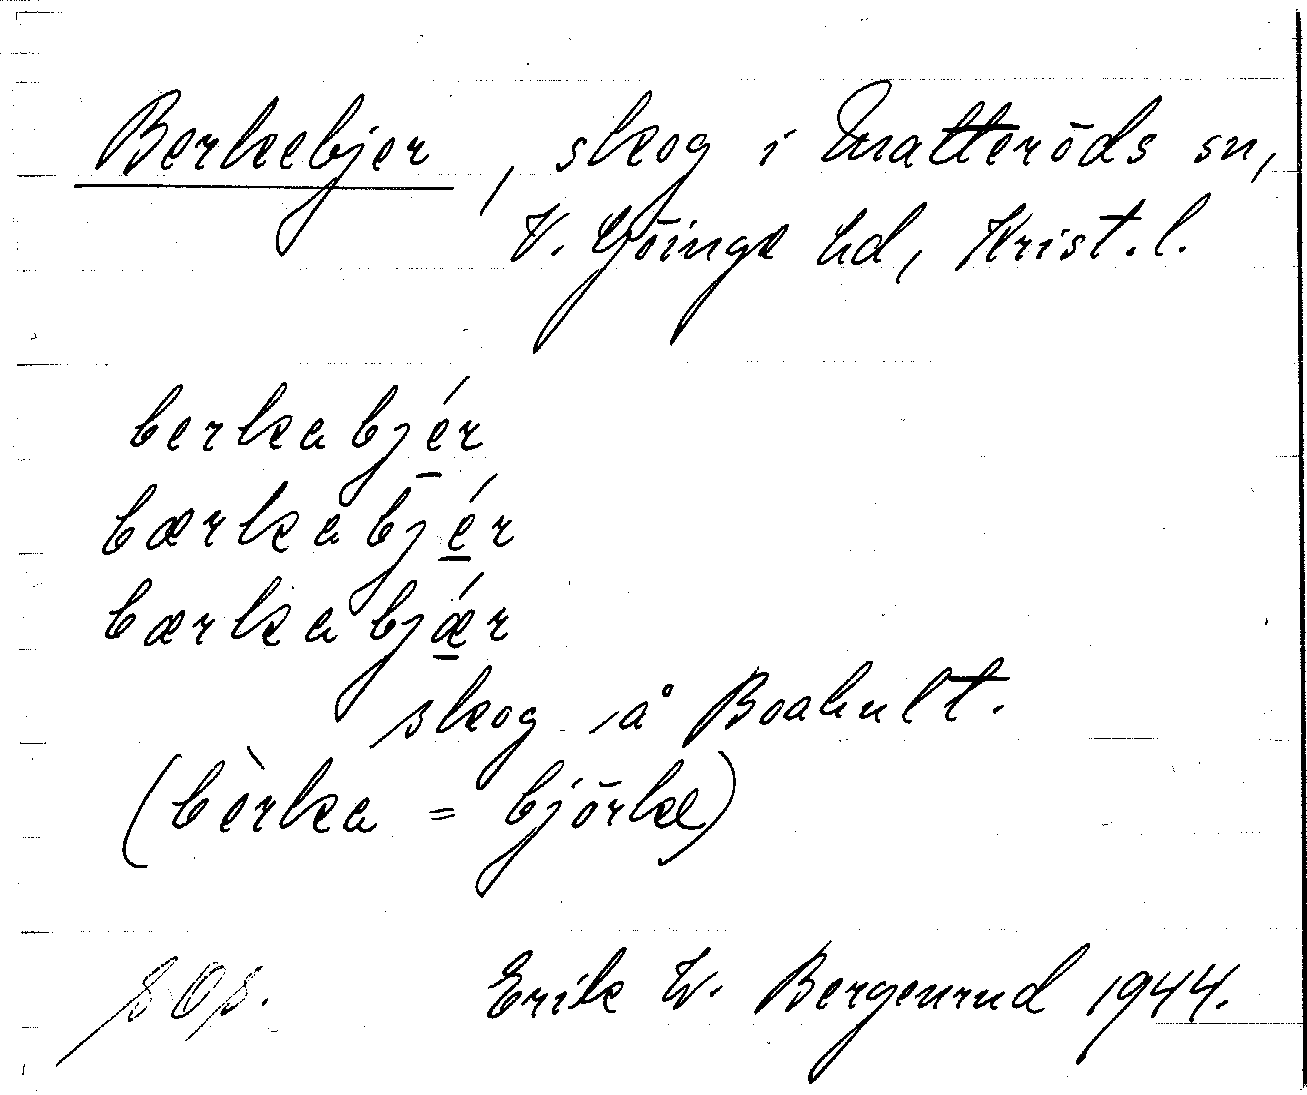 Berkebjer, skog i Matteröds sn,
V. Göinge hd, Krist. l.
berkabjér
bærkabjér
bærkabjǽr
skog å Boahult.
(bèrka = björke)
Erik W. Bergenrud 1944.